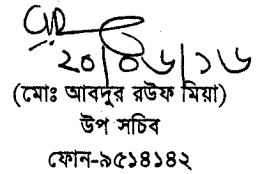 ২০/০৬/১৬
(মোঃ আবদুর রউফ মিয়া)
উপ সচিব
ফোন-৯৫১৪১৪২